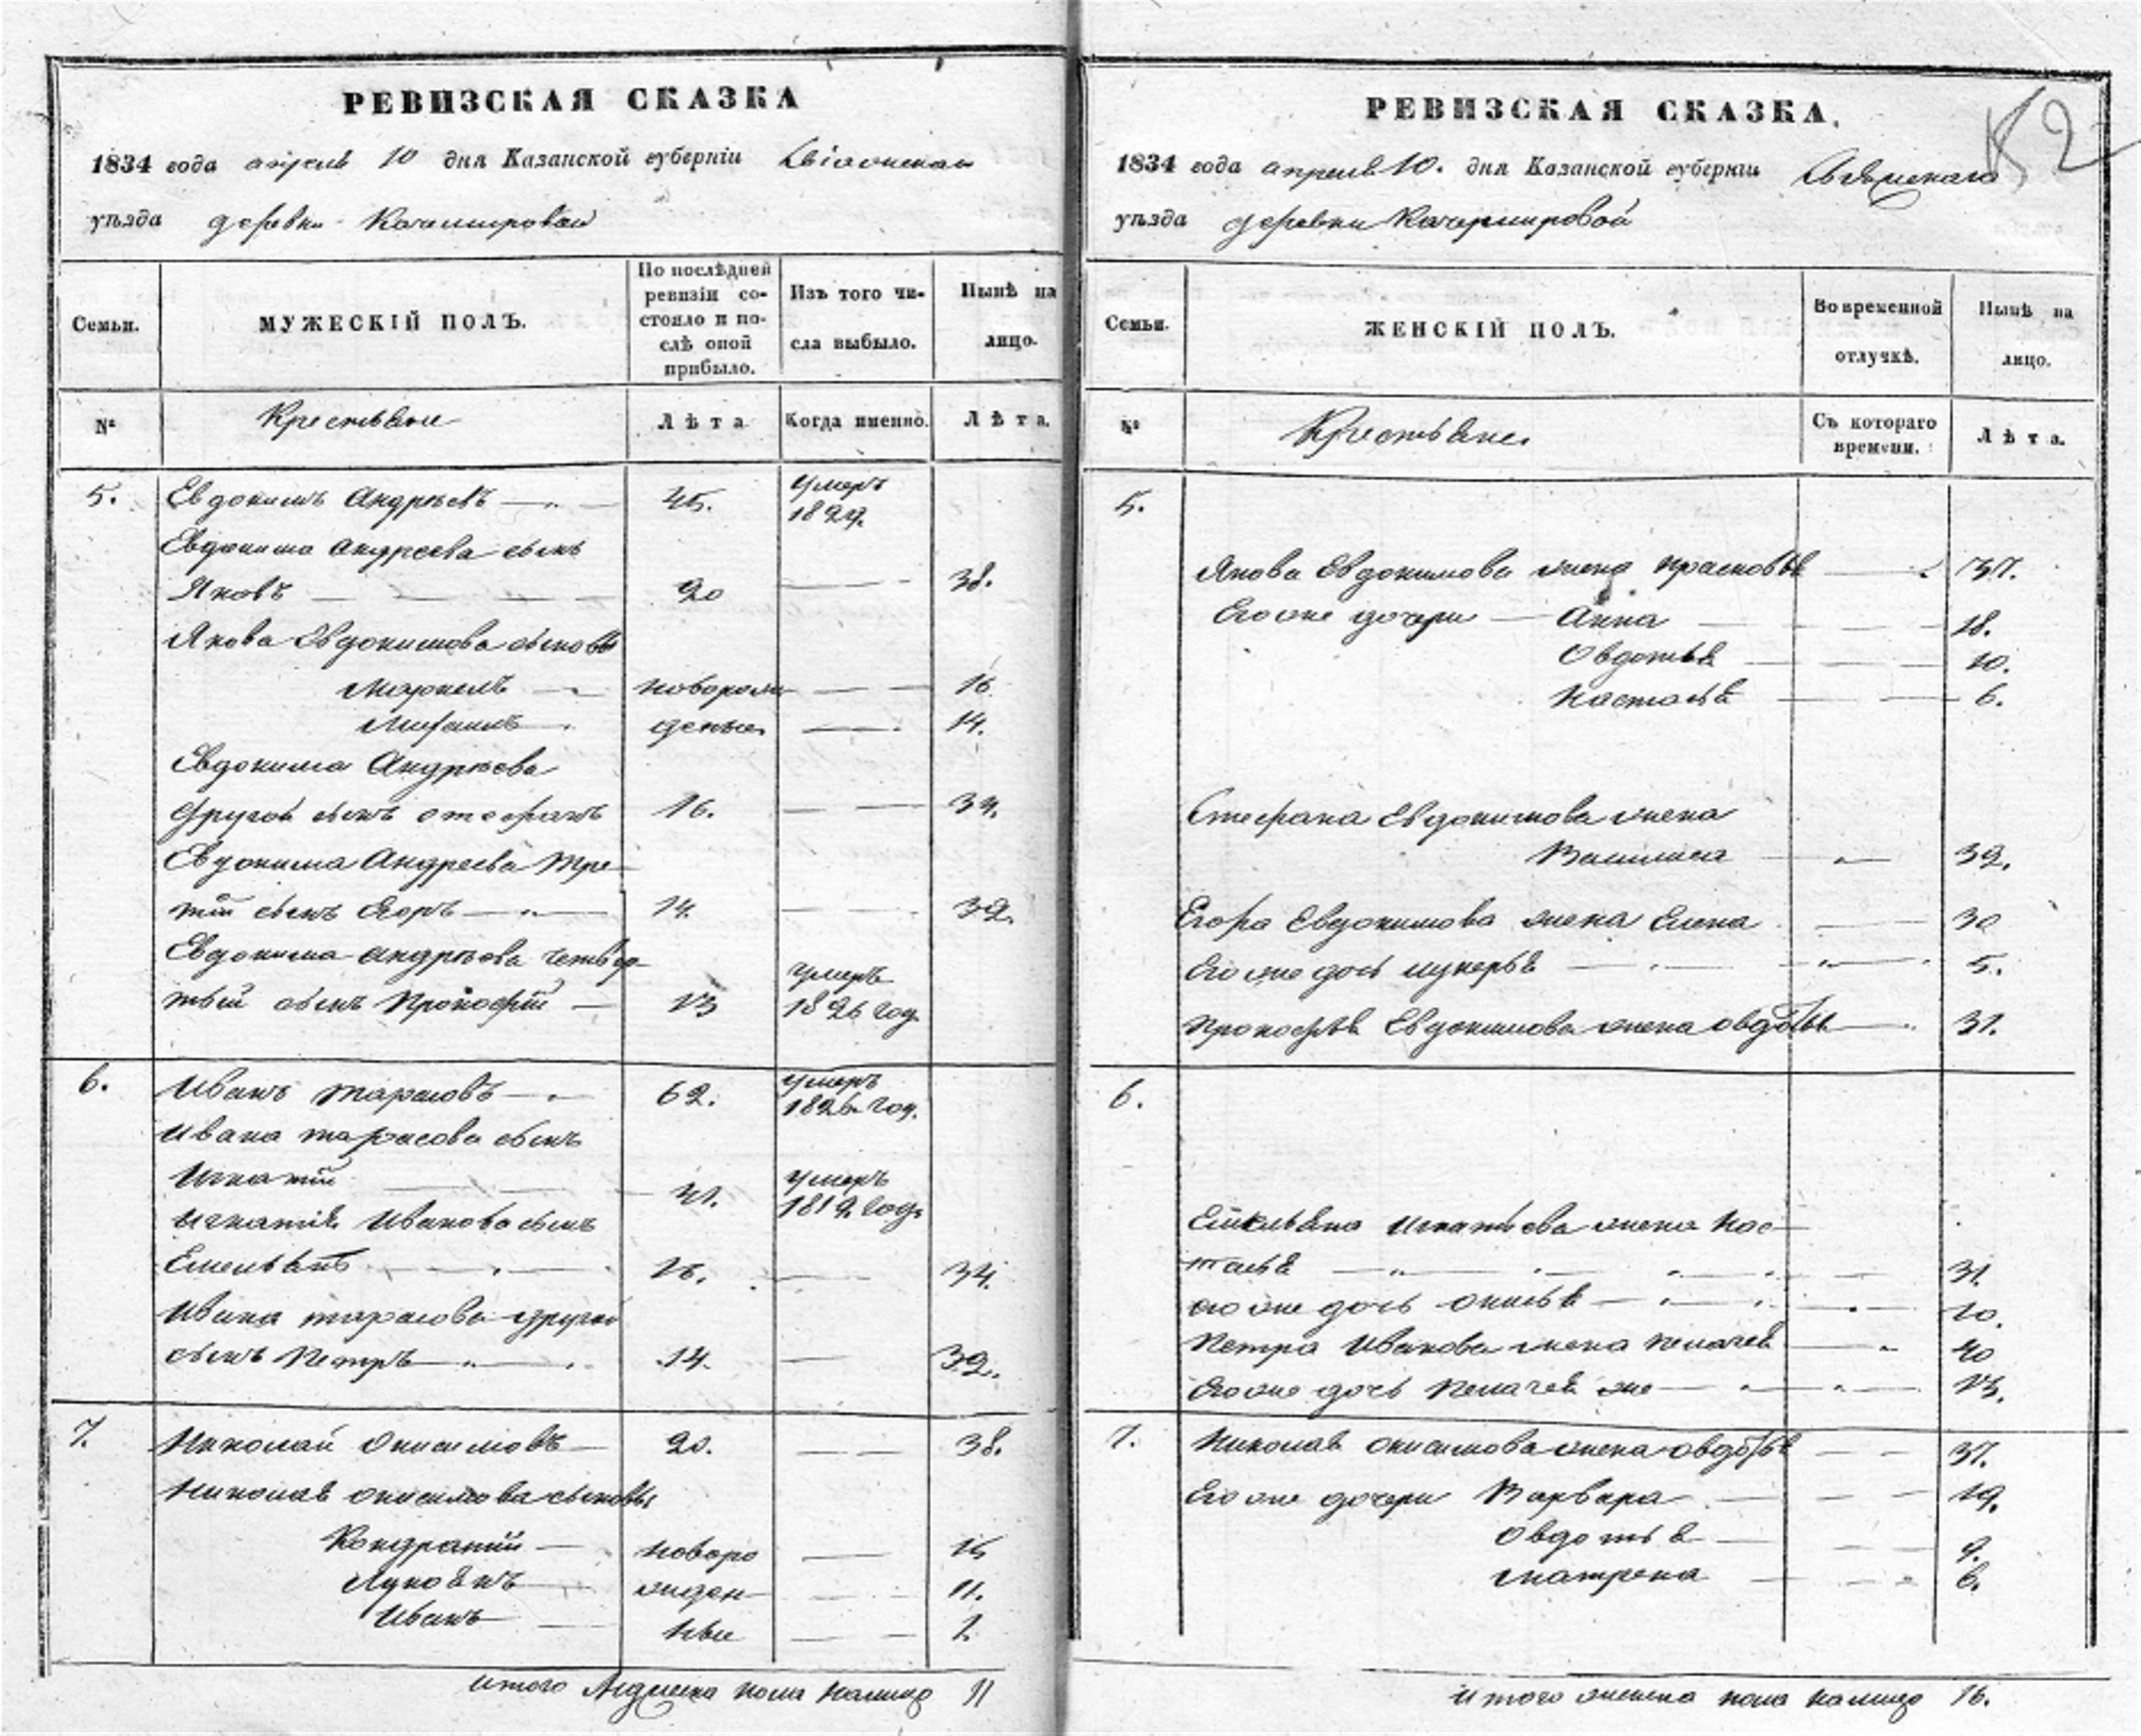 РЕВИЗСКАЯ СКАЗКА
1834 года апреля 10 дня Казанской губерніи
уѣзда деревни
Семьи.
МУЖЕСКІЙ ПОЛЪ.
По послѣдней ревизіи со-
стояло и по-
слѣ оной
прибыло.
Изъ того чи-
сла выбыло.
Нынѣ на
лицо.
№
Крестьяне
Лѣта
Когда именно.
Лѣта.
5. Евдокимъ Андрѣевъ 45. умеръ
Евдокима Андреева сынъ
Яковъ 20 38.
Якова Евдокимова сыновья
новорож 16
Михаилъ денные 14.
Евдокима Андрѣева
другой сынъ Стефанъ 16. 34.
Евдокима Андреева тре-
тій сынъ Егоръ 14. 32.
Евдокима Андрѣева четвер- умеръ
тый сынъ Прокофій 13 1826 год.
6. Иванъ Тарасовъ 62. умеръ
1826 год.
Ивана Тарасова сынъ
Игнатій умеръ
1819 год.
Игнатія Иванова сынъ
Емельянъ 16. 34.
Ивана Тарасова другой
сынъ Петръ 14. 32.
7. Николай Онисимовъ 20. 38.
Николая Онисимова сыновья
Кондратий новоро 15
Лукоянъ жден 11.
Иванъ ные
итого мужеска пола налицо 11
РЕВИЗСКАЯ СКАЗКА.
82
1834 года апреля 10. дня Казанской губерніи Свіяжскаго
уѣзда деревни
Семьи.
ЖЕНСКІЙ ПОЛЪ.
Во временной
отлучкѣ.
Нынѣ на
лицо.
№
Крестьяне.
Съ котораго
времени.
Лѣта.
5.
Якова Евдокимова жена Прасковья 37.
Его же дочери Анна 18.
Овдотья 10.
Настасья 6.
Стефана Евдокимова жена
Василиса 32.
Егора Евдокимова жена Елена 30
Его же дочь Лукерья 5.
Прокофья Евдокимова жена Овдотья 31.
6.
Емельяна Игнатьева жена Нас-
тасья 31.
его же дочь 10.
Петра Иванова жена Пелагея 40
Его же дочь Пелагея же 13.
7. Николая Онисимова жена Овдотья 37.
Его же дочери Варвара 19.
Овдотья 9.
Матрена 6.
Итого женска пола налицо 16.